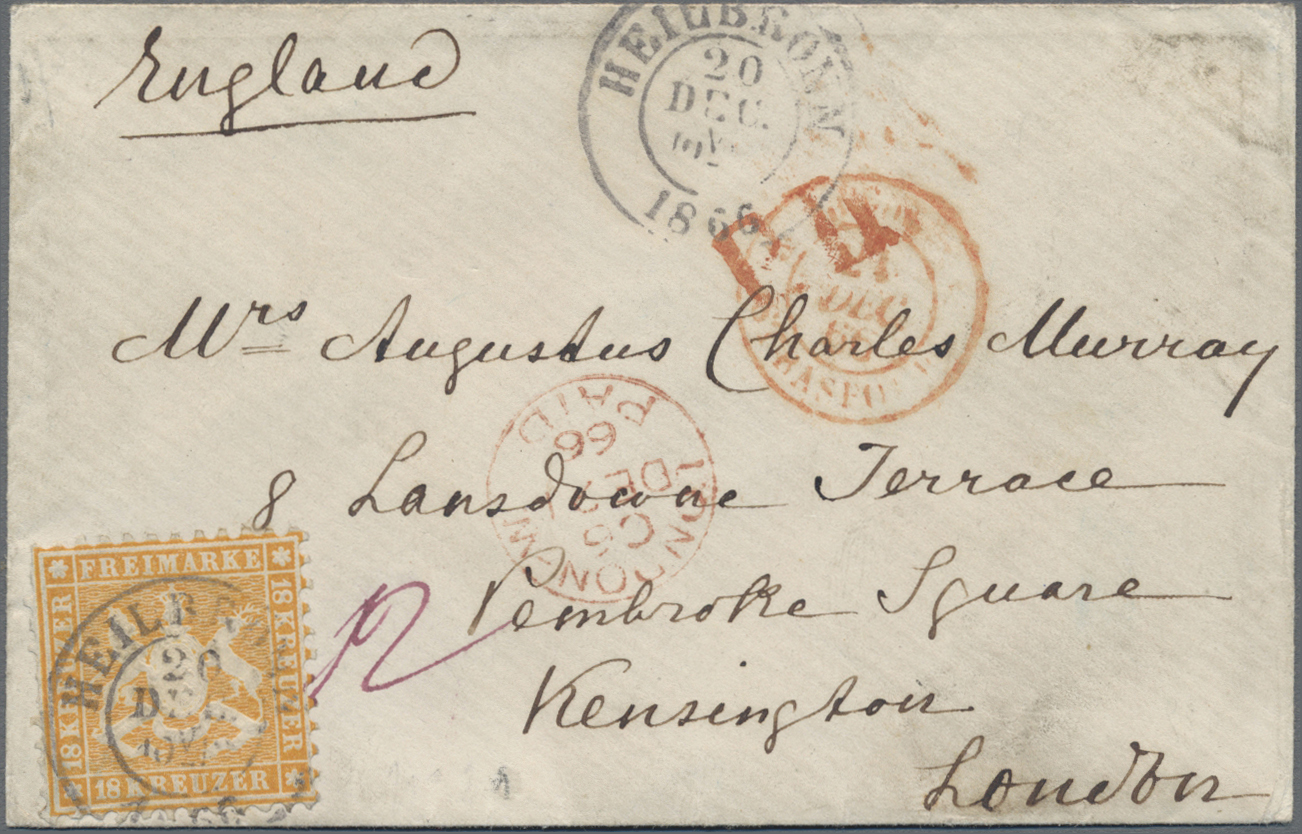 England
HEILBRONN
20
DEC.
1866
P.D.
21
DEC
66
STRASBOURG
Mrs Augustus Charles Murray
8 Lansdowne Terrace
Pembroke Square
Kensington
London
LONDON
PAID
66
DE
C6
12
FREIMARKE
18 KREUZER
18 KREUZER
18 KREUZER
HEILBRONN
20
DEC